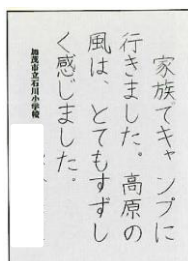 家族でキャンプに
行きました。高原の
風は、とてもすずし
く感じました。
加茂市立石川小学校